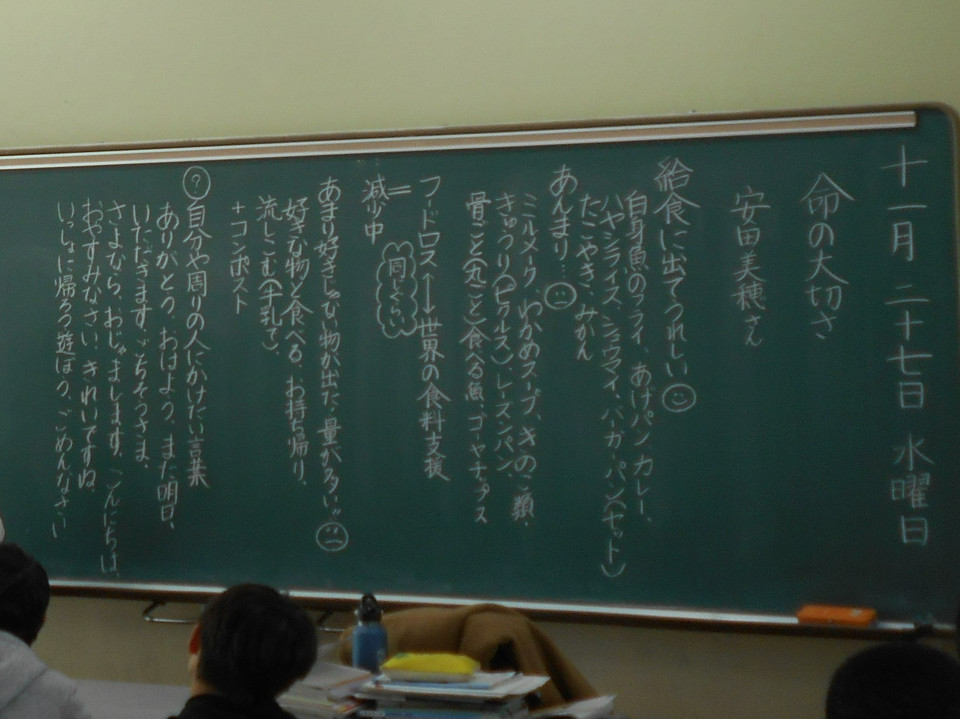 十一月二十七日 水曜日
命の大切さ
安田美穂さん
給食に出てうれしい
白身魚のフライ、あげパン、カレー、
ハヤシライス、シュウマイ、バーガーパン(セット)
たこやき、みかん
あんまり…
ミルメーク、わかめスープ、きのこ類、
きゅうり(ピクルス)、レーズンパン、
骨ごと(丸ごと)食べる魚、ゴヤチップス
フードロス←→世界の食料支援
同じくらい
=
減少中
あまり好きじゃない物が出た、量が多い…
好きな物と食べる、お持ち帰り、
流しこむ(牛乳で)、
+コンポスト
? 自分や周りの人にかけたい言葉
ありがとう、おはよう、また明日、
いただきます、ごちそうさま、
さよなら、おじゃまします、こんにちは、
おやすみなさい、きれいですね、
いっしょに帰ろう、遊ぼう、ごめんなさい